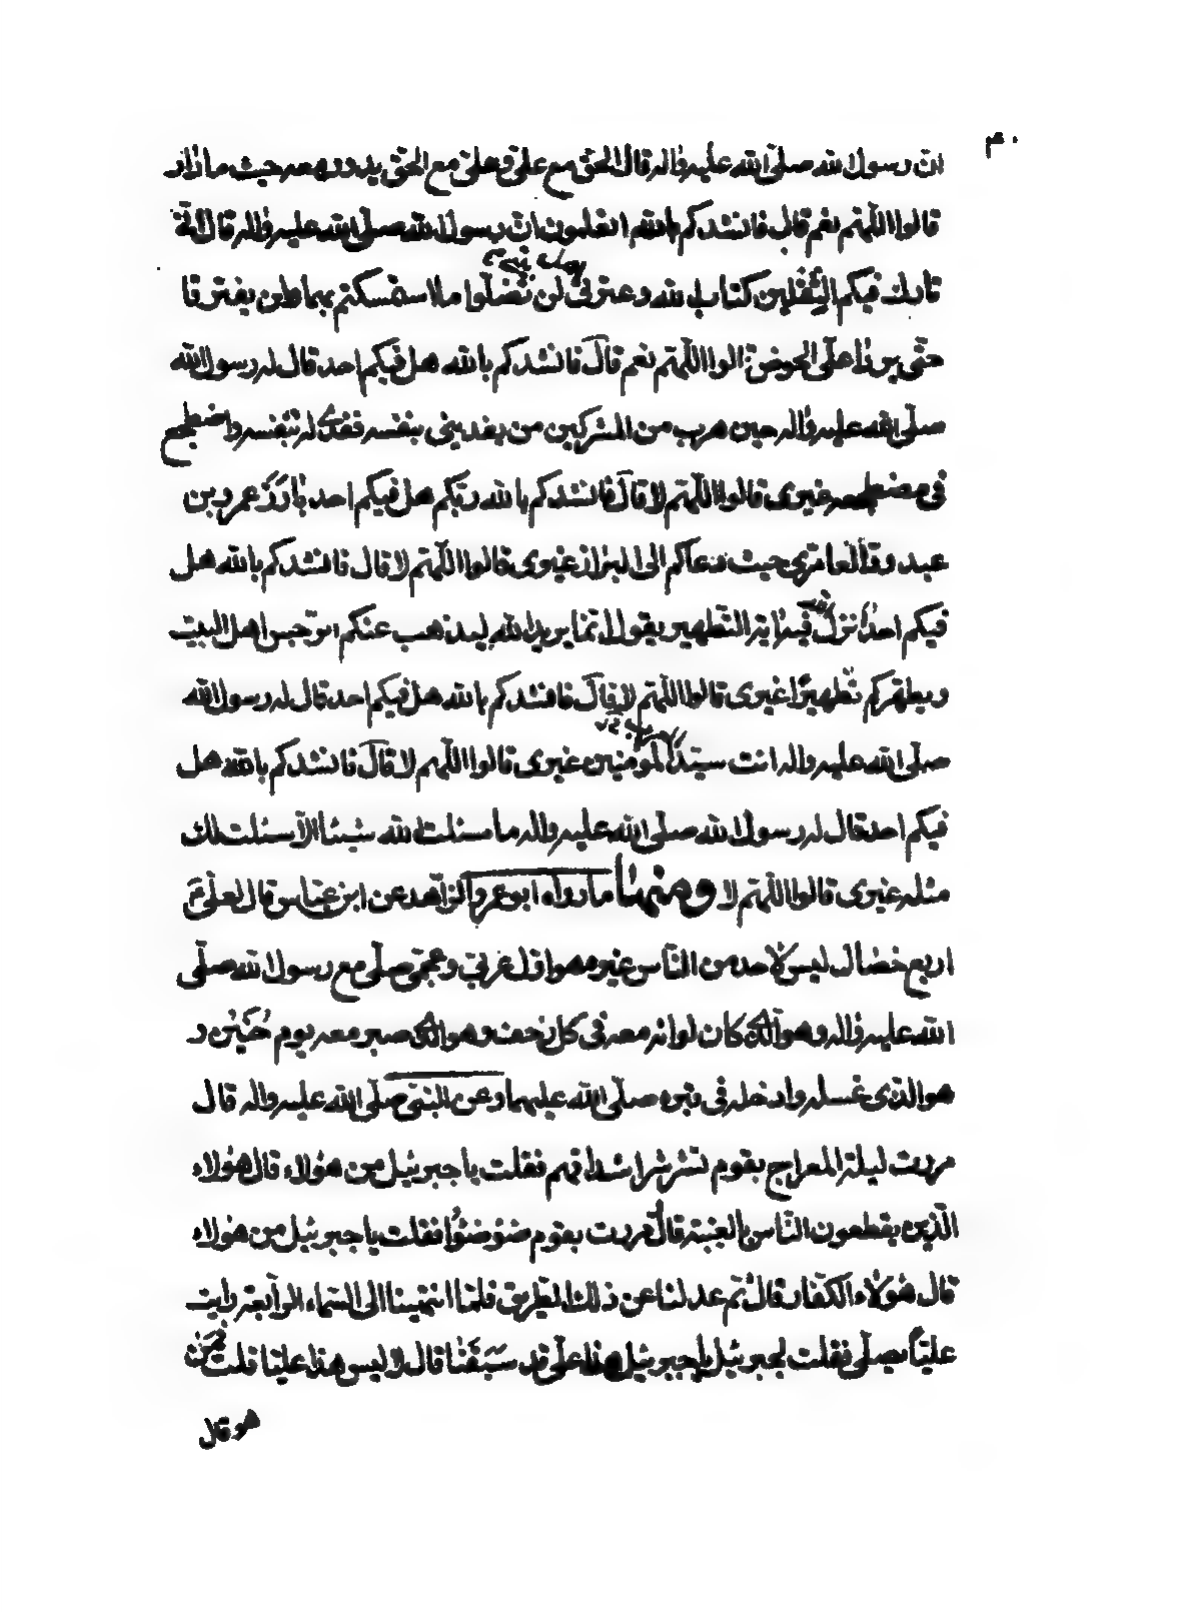 ۴۰
ان رسول الله صلّى الله عليه واله قال الحق مع علىّ وعلىّ مع الحق يدور معه حيث ما دار
قالوا اللّهم نعم قال فانشدكم بالله اتعلمون انّ رسول الله صلّى الله عليه واله قال انّى
تارك فيكم الثقلين كتاب الله وعترتى لن تضلّوا ما استمسكتم بهما ولن يفترقا
حتّى يردا علىّ الحوض قالوا اللّهم نعم قال فانشدكم بالله هل فيكم احد قال له رسول الله
صلّى الله عليه واله حين هرب من المشركين من يفدينى بنفسه ففدى له بنفسه واضطجع
فى مضطجعه غيرى قالوا اللّهم لا قال فانشدكم بالله ربّكم هل فيكم احد بارز عمرو بن
عبد ودّ العامرى حيث دعاكم الى البراز غيرى قالوا اللّهم لا قال فانشدكم بالله هل
فيكم احد انزل الله فيه اية التطهير يقول انّما يريد الله ليذهب عنكم الرّجس اهل البيت
ويطهّركم تطهيرًا غيرى قالوا اللّهم لا قال فانشدكم بالله هل فيكم احد قال له رسول الله
صلّى الله عليه واله انت سيّد المؤمنين غيرى قالوا اللّهم لا قال فانشدكم بالله هل
فيكم احد قال له رسول الله صلّى الله عليه واله ما سئلت الله شيئا الّا سئلت لك
مثله غيرى قالوا اللّهم لا ومنها ما رواه ابو عمرو الزاهد عن ابن عبّاس قال لعلىّ ع
اربع خصال ليس لاحد من النّاس غيره هو اوّل عربىّ وعجمىّ صلّى مع رسول الله صلّى
الله عليه واله وهو الّذى كان لوائه معه فى كلّ زحف وهو الّذى صبر معه يوم حُنَيْن و
هو الذى غسله وادخله فى قبره صلّى الله عليهما وعن النبىّ صلّى الله عليه واله قال
مررت ليلة المعراج بقوم تشرشر اشداقهم فقلت يا جبرئيل من هؤلاء قال هؤلاء
الّذين يقطعون النّاس بالغيبة قال ومررت بقوم ضوضؤا فقلت يا جبرئيل من هؤلاء
قال هؤلاء الكفّار قال ثمّ عدلنا عن ذلك الطريق فلمّا انتهينا الى السّماء الرابعة رايت
عليّا يصلّى فقلت لجبرئيل يا جبرئيل هذا علىّ قد سَبَقَنا قال لا ليس هذا عليّا قلت فمن
هو قال